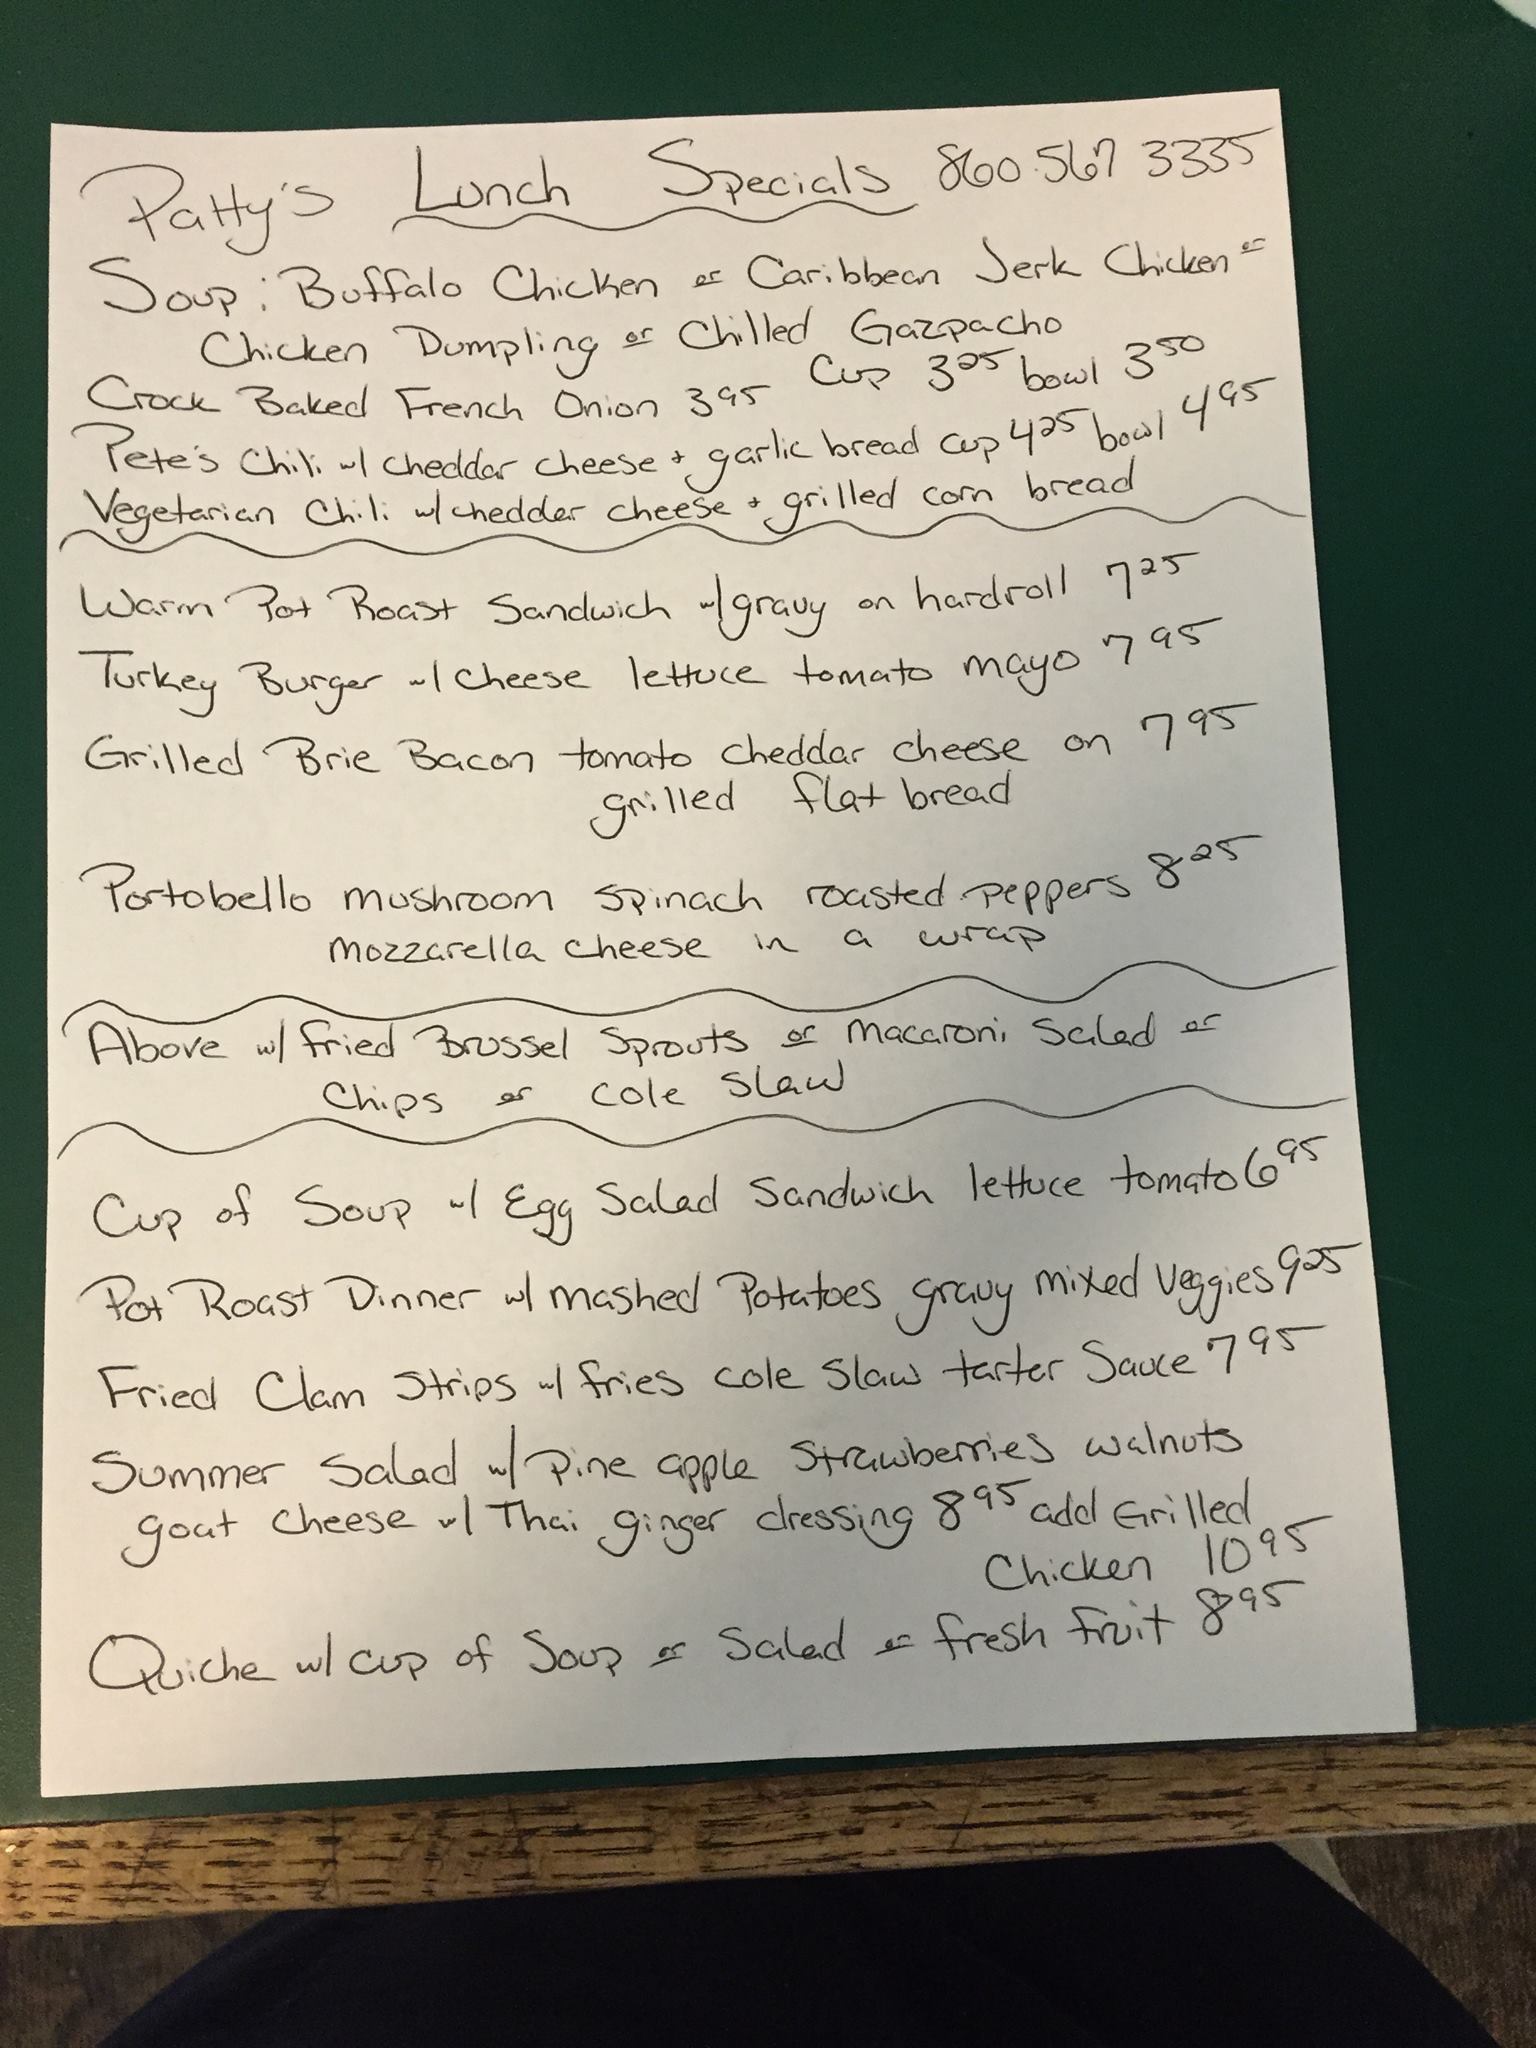 Patty's Lunch Specials 860.567 3335
Soup: Buffalo Chicken or Caribbean Jerk Chicken or
Chicken Dumpling or Chilled Gazpacho
Cup 3 25 bowl 3 50
Crock Baked French Onion 3 95
Pete's Chili w/ cheddar cheese + garlic bread cup 4 25 bowl 4 95
Vegetarian Chili w/ chedder cheese + grilled corn bread
Warm Pot Roast Sandwich w/ gravy on hardroll 7 25
Turkey Burger w/ cheese lettuce tomato mayo 7 95
Grilled Brie Bacon tomato cheddar cheese on 7 95
grilled flat bread
Portobello mushroom spinach roasted peppers 8 25
mozzarella cheese in a wrap
Above w/ fried Brussel Sprouts or macaroni salad or
Chips or cole slaw
Cup of Soup w/ Egg Salad Sandwich lettuce tomato 6 95
Pot Roast Dinner w/ mashed Potatoes gravy mixed veggies 9 25
Fried Clam Strips w/ fries cole slaw tarter Sauce 7 95
Summer Salad w/ Pine apple strawberries walnuts
goat cheese w/ Thai ginger dressing 8 95 add Grilled
Chicken 10 95
Quiche w/ cup of Soup or salad or fresh fruit 8 95